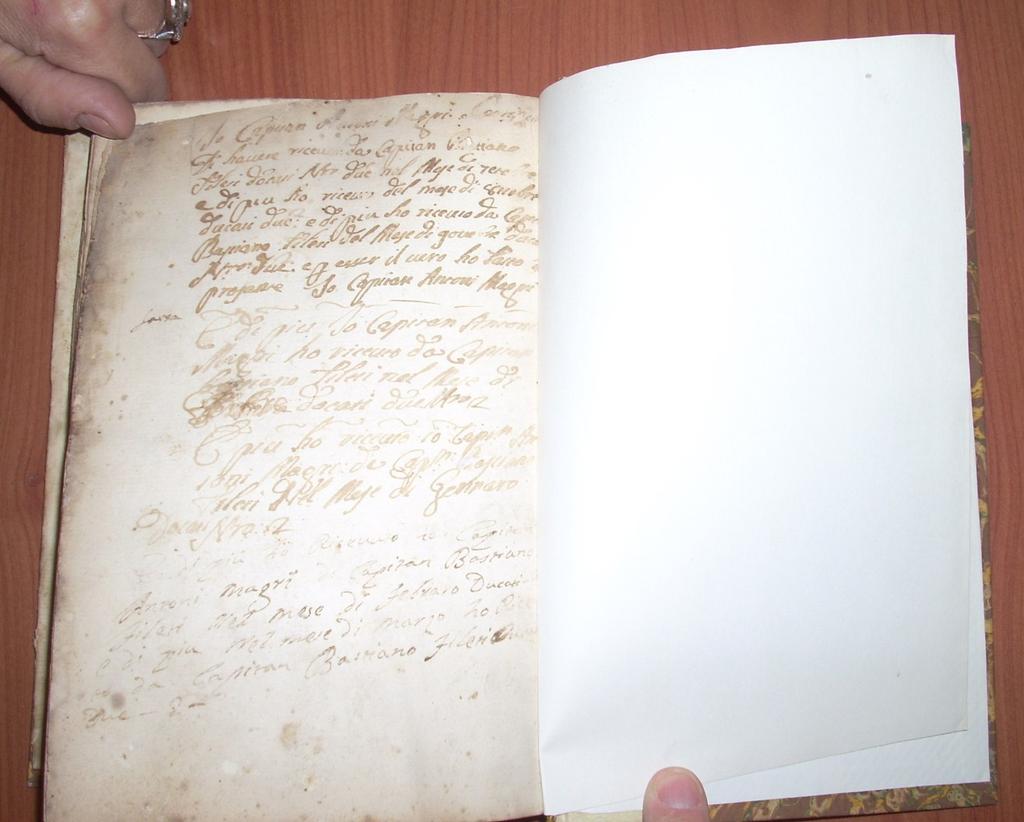 Io Capitan Antoni Magri
havere riceuto da Capitan Bastiano
Fileri docati Nro due nel Mese di
e di piu ho riceuto del mese di
ducati due: e di piu ho riceuto da
Bastiano Fileri del Mese di
Nro: due: e p esser il vero ho fatto
presente Io Capitan Antoni Magri
E di piu Io Capitan Antoni
Magri ho riceuto da Capitan
Bastiano Fileri nel Mese di
docati due Nro 2
E piu ho riceuto io Capitn An
toni Magri: da Capn: Bastian
Fileri Nel Mese di Gennaro
Docati Nro: 2
di piu ho Riceuuto io Capitan
Antoni magri Capitan Bastiano
Fileri Nel mese di febraro Ducati
e di piu nel mese di marzo ho Rice
to da Capitan Bastiano Fileri
due - 2 -